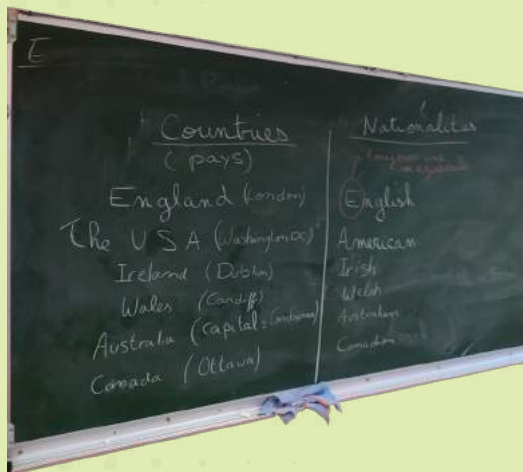 E
Countries
(pays)
England (London)
The USA (Washington DC)
Ireland (Dublin)
Wales (Cardiff)
Australia (capital = Canberra)
Canada (Ottawa)
Nationalities
toujours une majuscule
English
American
Irish
Welsh
Australian
Canadian